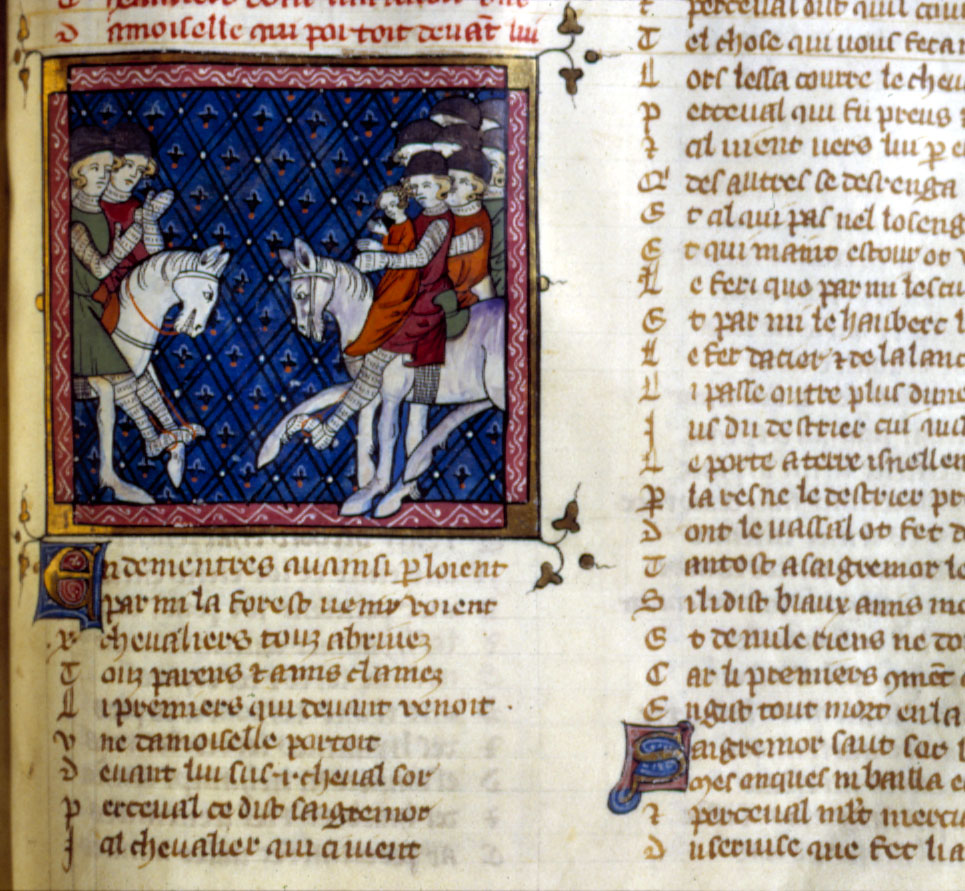 amoiselle qui portoit devãt lui
En dementres quainsi ploient
par mi la forest venir voient
x chevaliers touz abrivez
Touz parens ⁊ amis clamez
Li premiers qui devant venoit
Une damoiselle portoit
Devant lui sus .i. cheval sor
Perceval ce dist saigremor
J al chevalier qui ci vient
t perceval dist quil
Tel chose qui vous fera
Lors lessa courre le
Perceval qui fu preus
⁊ cil vient vers lui p
des autres se desrenga
Et cil qui pas nel
Et qui maint estour ot
Le feri que par mi
Et par mi le hauberc
Le fer dacier ⁊ de la
Li passe outre plus dune
Jus du destrier
Le porte a terre isnel
P la resne le destrier
Dont le vassal ot fet
Tantost a saigremor le
Si li dist biaux amis
Et de nule riens ne
Car li premiers
Engist tout mort en la
Saigremor saut sor
Mes onques ni bailla
⁊ perceval mlt
Du servise que fet li a